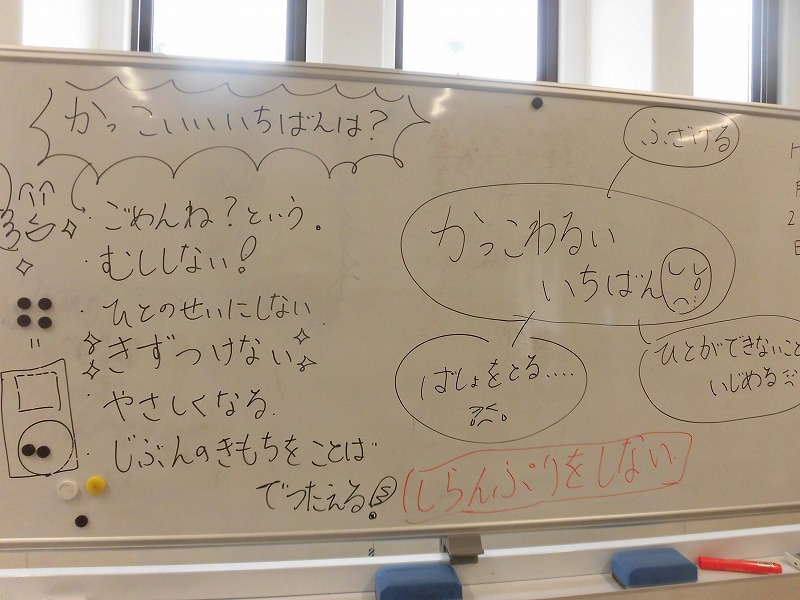 かっこいいいちばんは?
・ごめんね?という。
・むししない!
・ひとのせいにしない
きずつけない
・やさしくなる.
・じぶんのきもちをことば
でつたえる!
ふざける
かっこわるい
いちばん
ばしょをとる....
ひとができないこと
いじめる
しらんぷりをしない
月
2
日